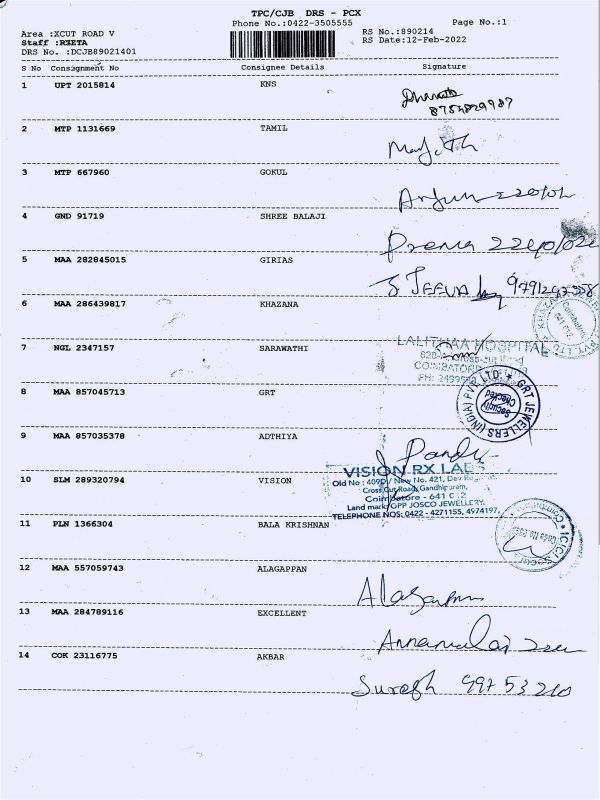 TPC/CJB DRS - PCX
Phone No.:0422-3505555 Page No.:1
Area :XCUT ROAD V RS No.:890214
Staff :R3ETA RS Date:12-Feb-2022
DRS No. :DCJB89021401
S No Consignment No Consignee Details Signature
1 UPT 2015814 KNS
8754829987
2 MTP 1131669 TAMIL
3 MTP 667960 GOKUL
Arjun
4 GND 91719 SHREE BALAJI
Prema
5 MAA 282845015 GIRIAS
S JEEVA
6 MAA 286439817 KHAZANA
7 NGL 2347157 SARAWATHI
LALITHAA HOSPITAL
COIMBATORE
8 MAA 857045713 GRT
GRT JEWELLERS (INDIA) PVT. LTD.
Security
Checked
9 MAA 857035378 ADTHIYA
Pandy
10 SLM 289320794 VISION
VISION RX LABS
Old No : 409D / New No. 421, Dev
Cross Cut Road, Gandhipuram,
Coimbatore - 641 012
Land mark: OPP JOSCO JEWELLERY.
TELEPHONE NOS: 0422 - 4271155, 4974197,
11 PLN 1366304 BALA KRISHNAN
12 MAA 557059743 ALAGAPPAN
Alagappan
13 MAA 284789116 EXCELLENT
Annamalai
14 COK 23116775 AKBAR
Suresh 99753210